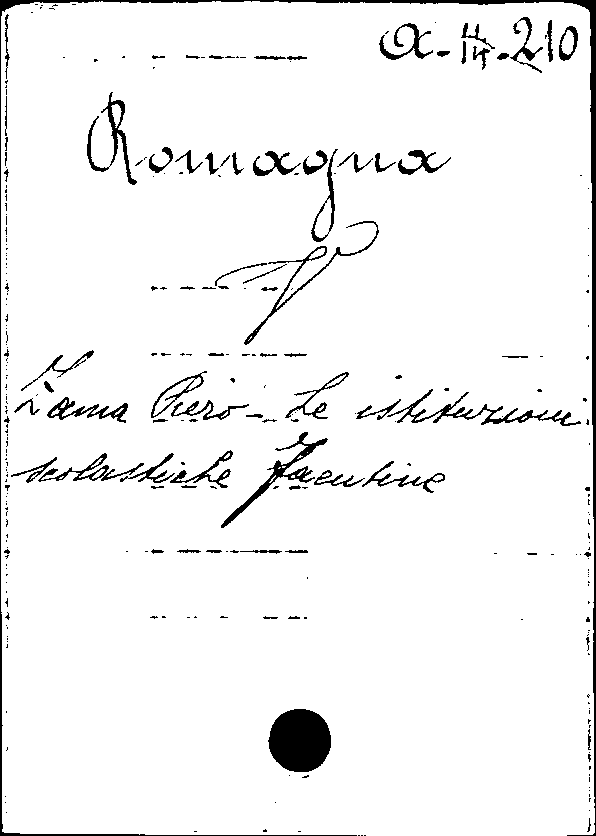 α-III-210
Romagna
V
Zama Piero - Le istituzioni
scolastiche Faentine